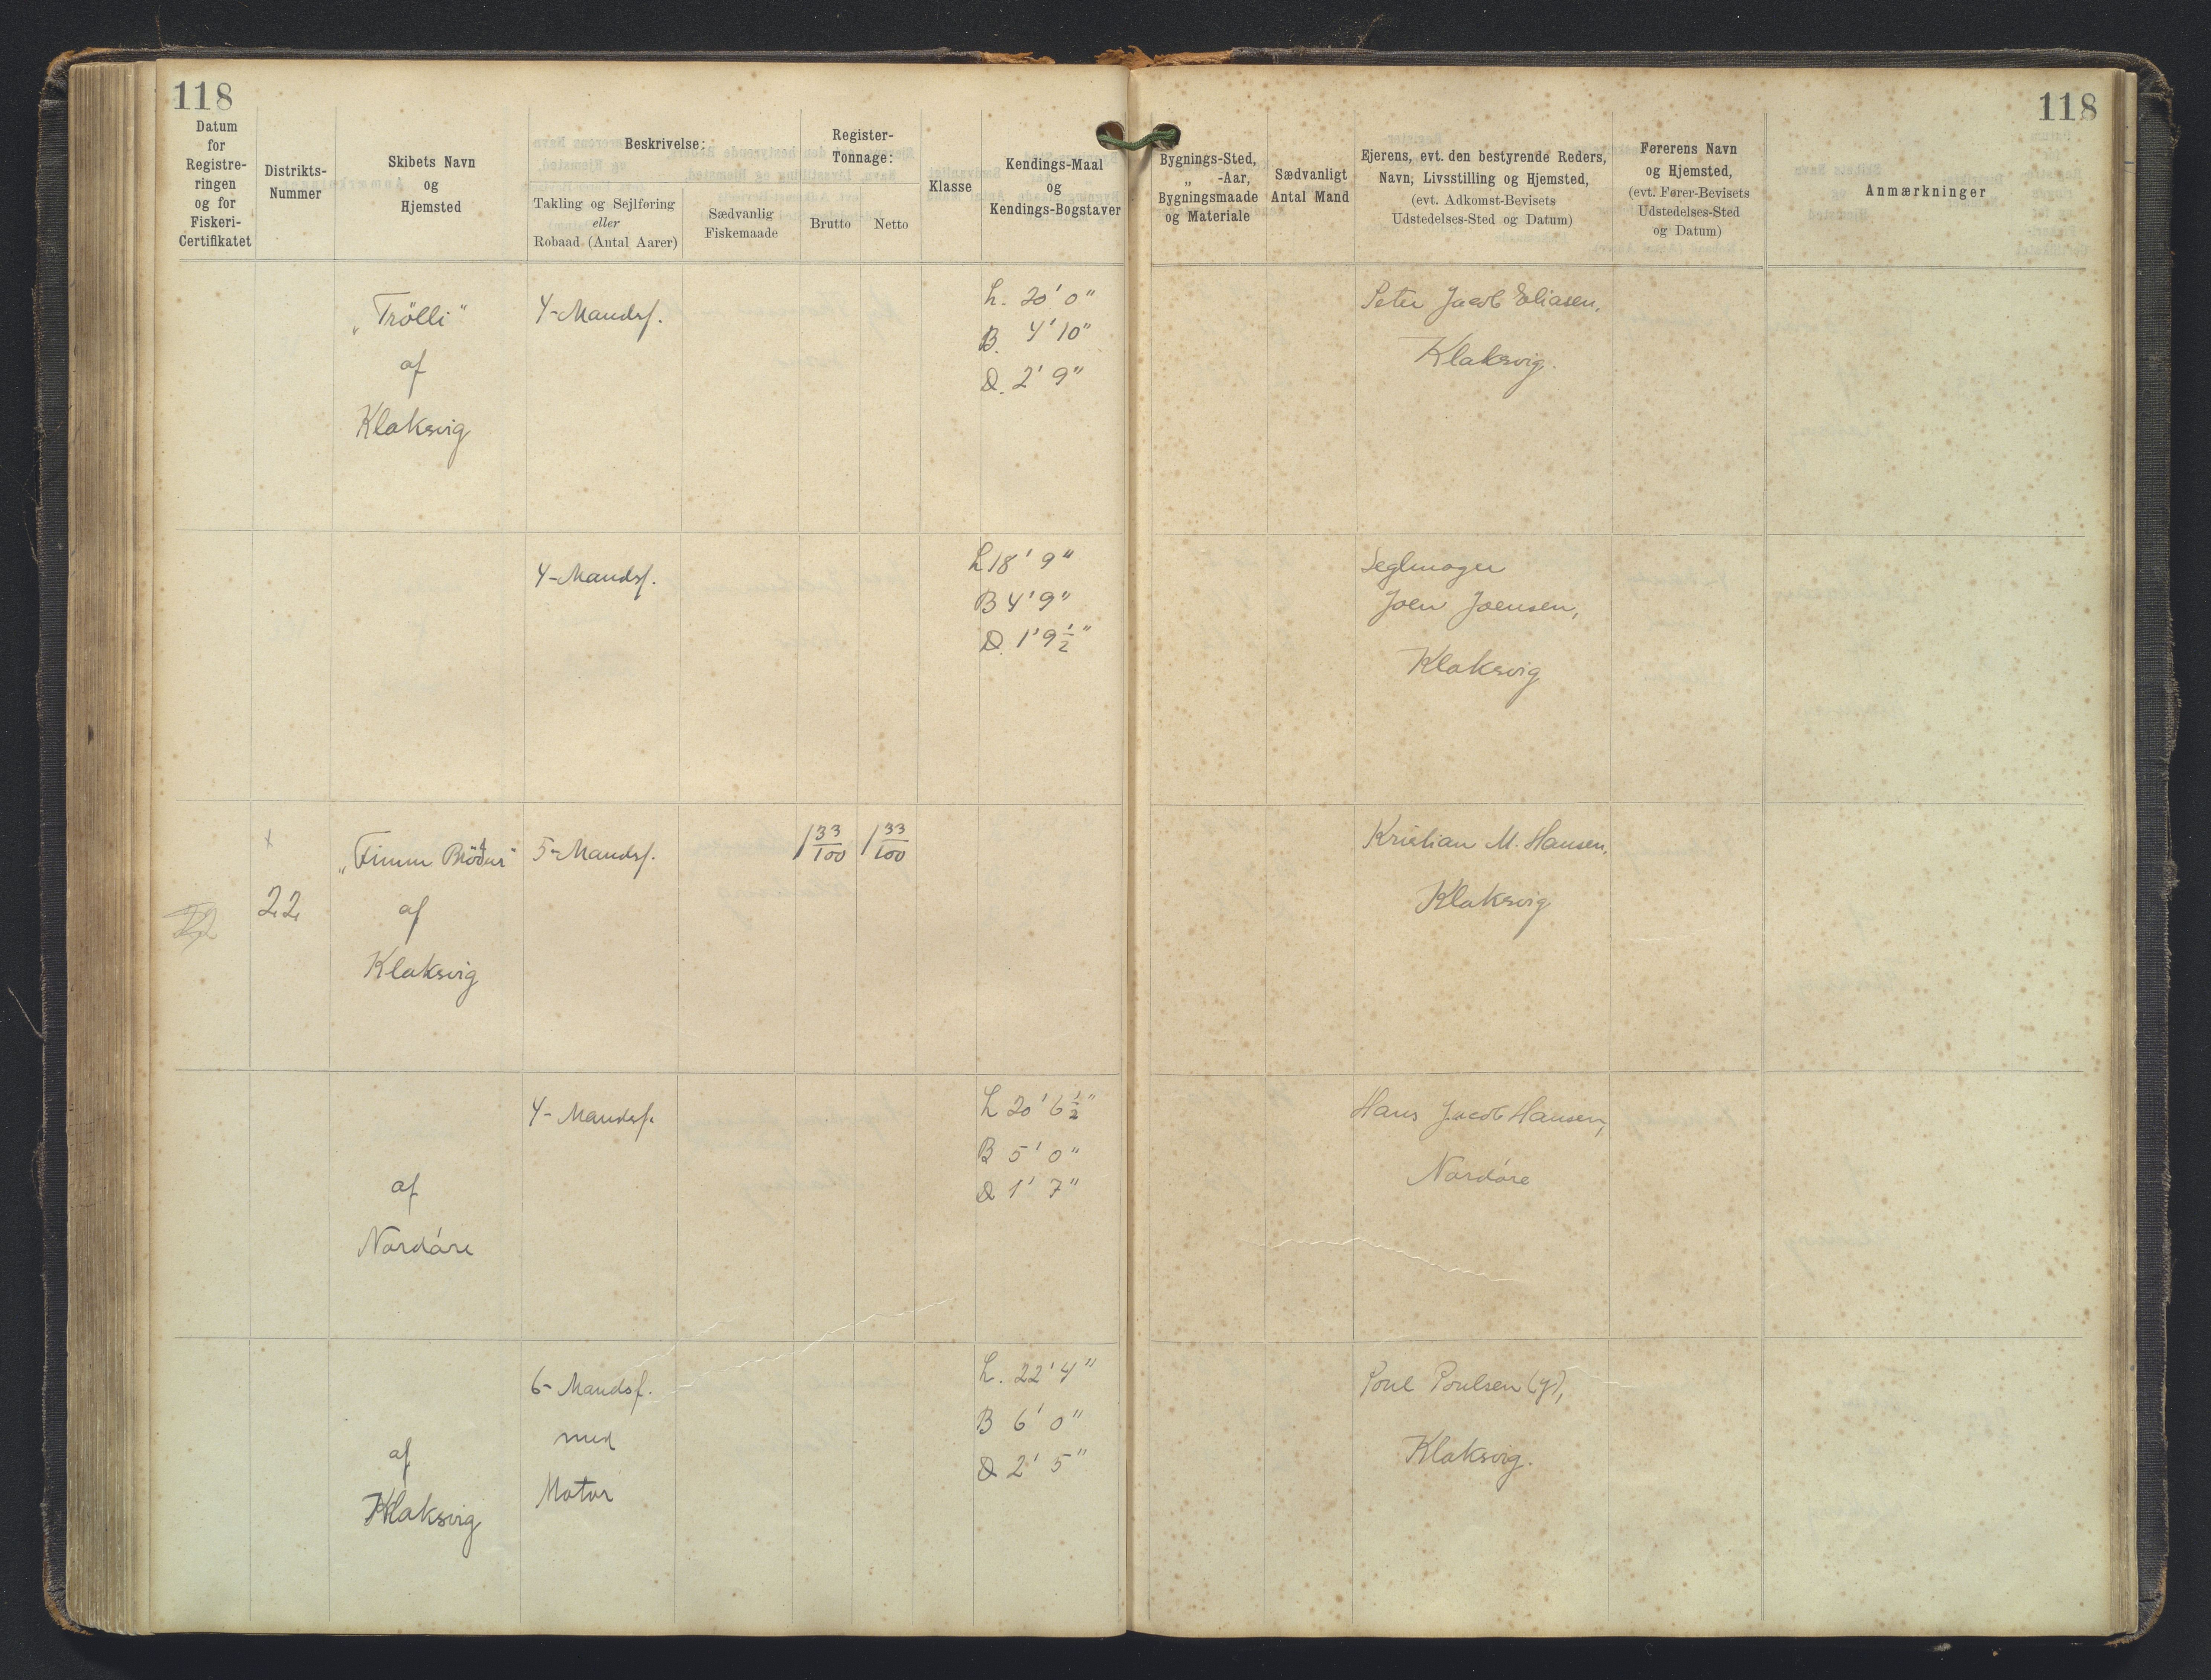 118
118
Datum
for
Registre-
ringen
og for
Fiskeri-
Certifikatet
Distrikts-
Nummer
Skibets Navn
og
Hjemsted
Beskrivelse:
Takling og Sejlføring
eller
Robaad (Antal Aarer)
Sædvanlig
Fiskemaade
Register-
Tonnage:
Brutto
Netto
Klasse
Kendings-Maal
og
Kendings-Bogstaver
Bygnings-Sted,
„ -Aar,
Bygningsmaade
og Materiale
Sædvanligt
Antal Mand
Ejerens, evt. den bestyrende Reders,
Navn, Livsstilling og Hjemsted,
(evt. Adkomst-Bevisets
Udstedelses-Sted og Datum)
Førerens Navn
og Hjemsted,
(evt. Fører-Bevisets
Udstedelses-Sted
og Datum)
Anmærkninger
„Trölli"
af
Klaksvig
4-Mandsf.
L. 20' 0"
B. 4' 10"
D. 2' 9"
Peter Jacob Eliasen,
Klaksvig.
4-Mandsf.
L 18' 9"
B 4' 9"
D. 1' 9 1/2"
Seglmager
Joen Joensen,
Klaksvig
x
22
22
„Fimm Bröður"
af
Klaksvig
5-Mandsf.
1 33/100
1 33/100
Kristian M. Hansen,
Klaksvig
af
Nordóre
4-Mandsf.
L 20' 6 1/2"
B 5' 0"
D 1' 7"
Hans Jacob Hansen,
Nordóre
af
Klaksvig
6-Mandsf.
med
Motor
L. 22' 4"
B 6' 0"
D 2' 5"
Poul Poulsen (y),
Klaksvig.